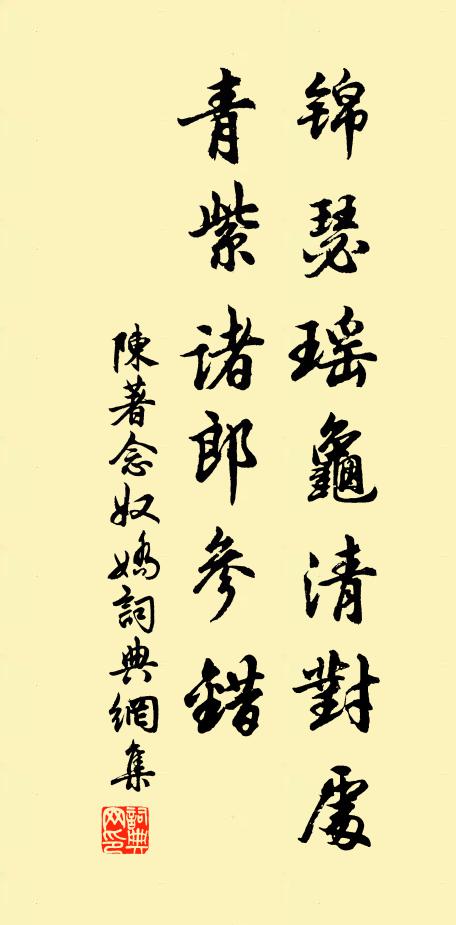 锦瑟瑶龜清對處
青紫诸郎參錯
陳著念奴嬌詞典網集
詞典网印